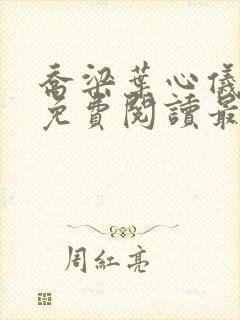 喬梁葉心儀
免費閱讀最
周紅亮